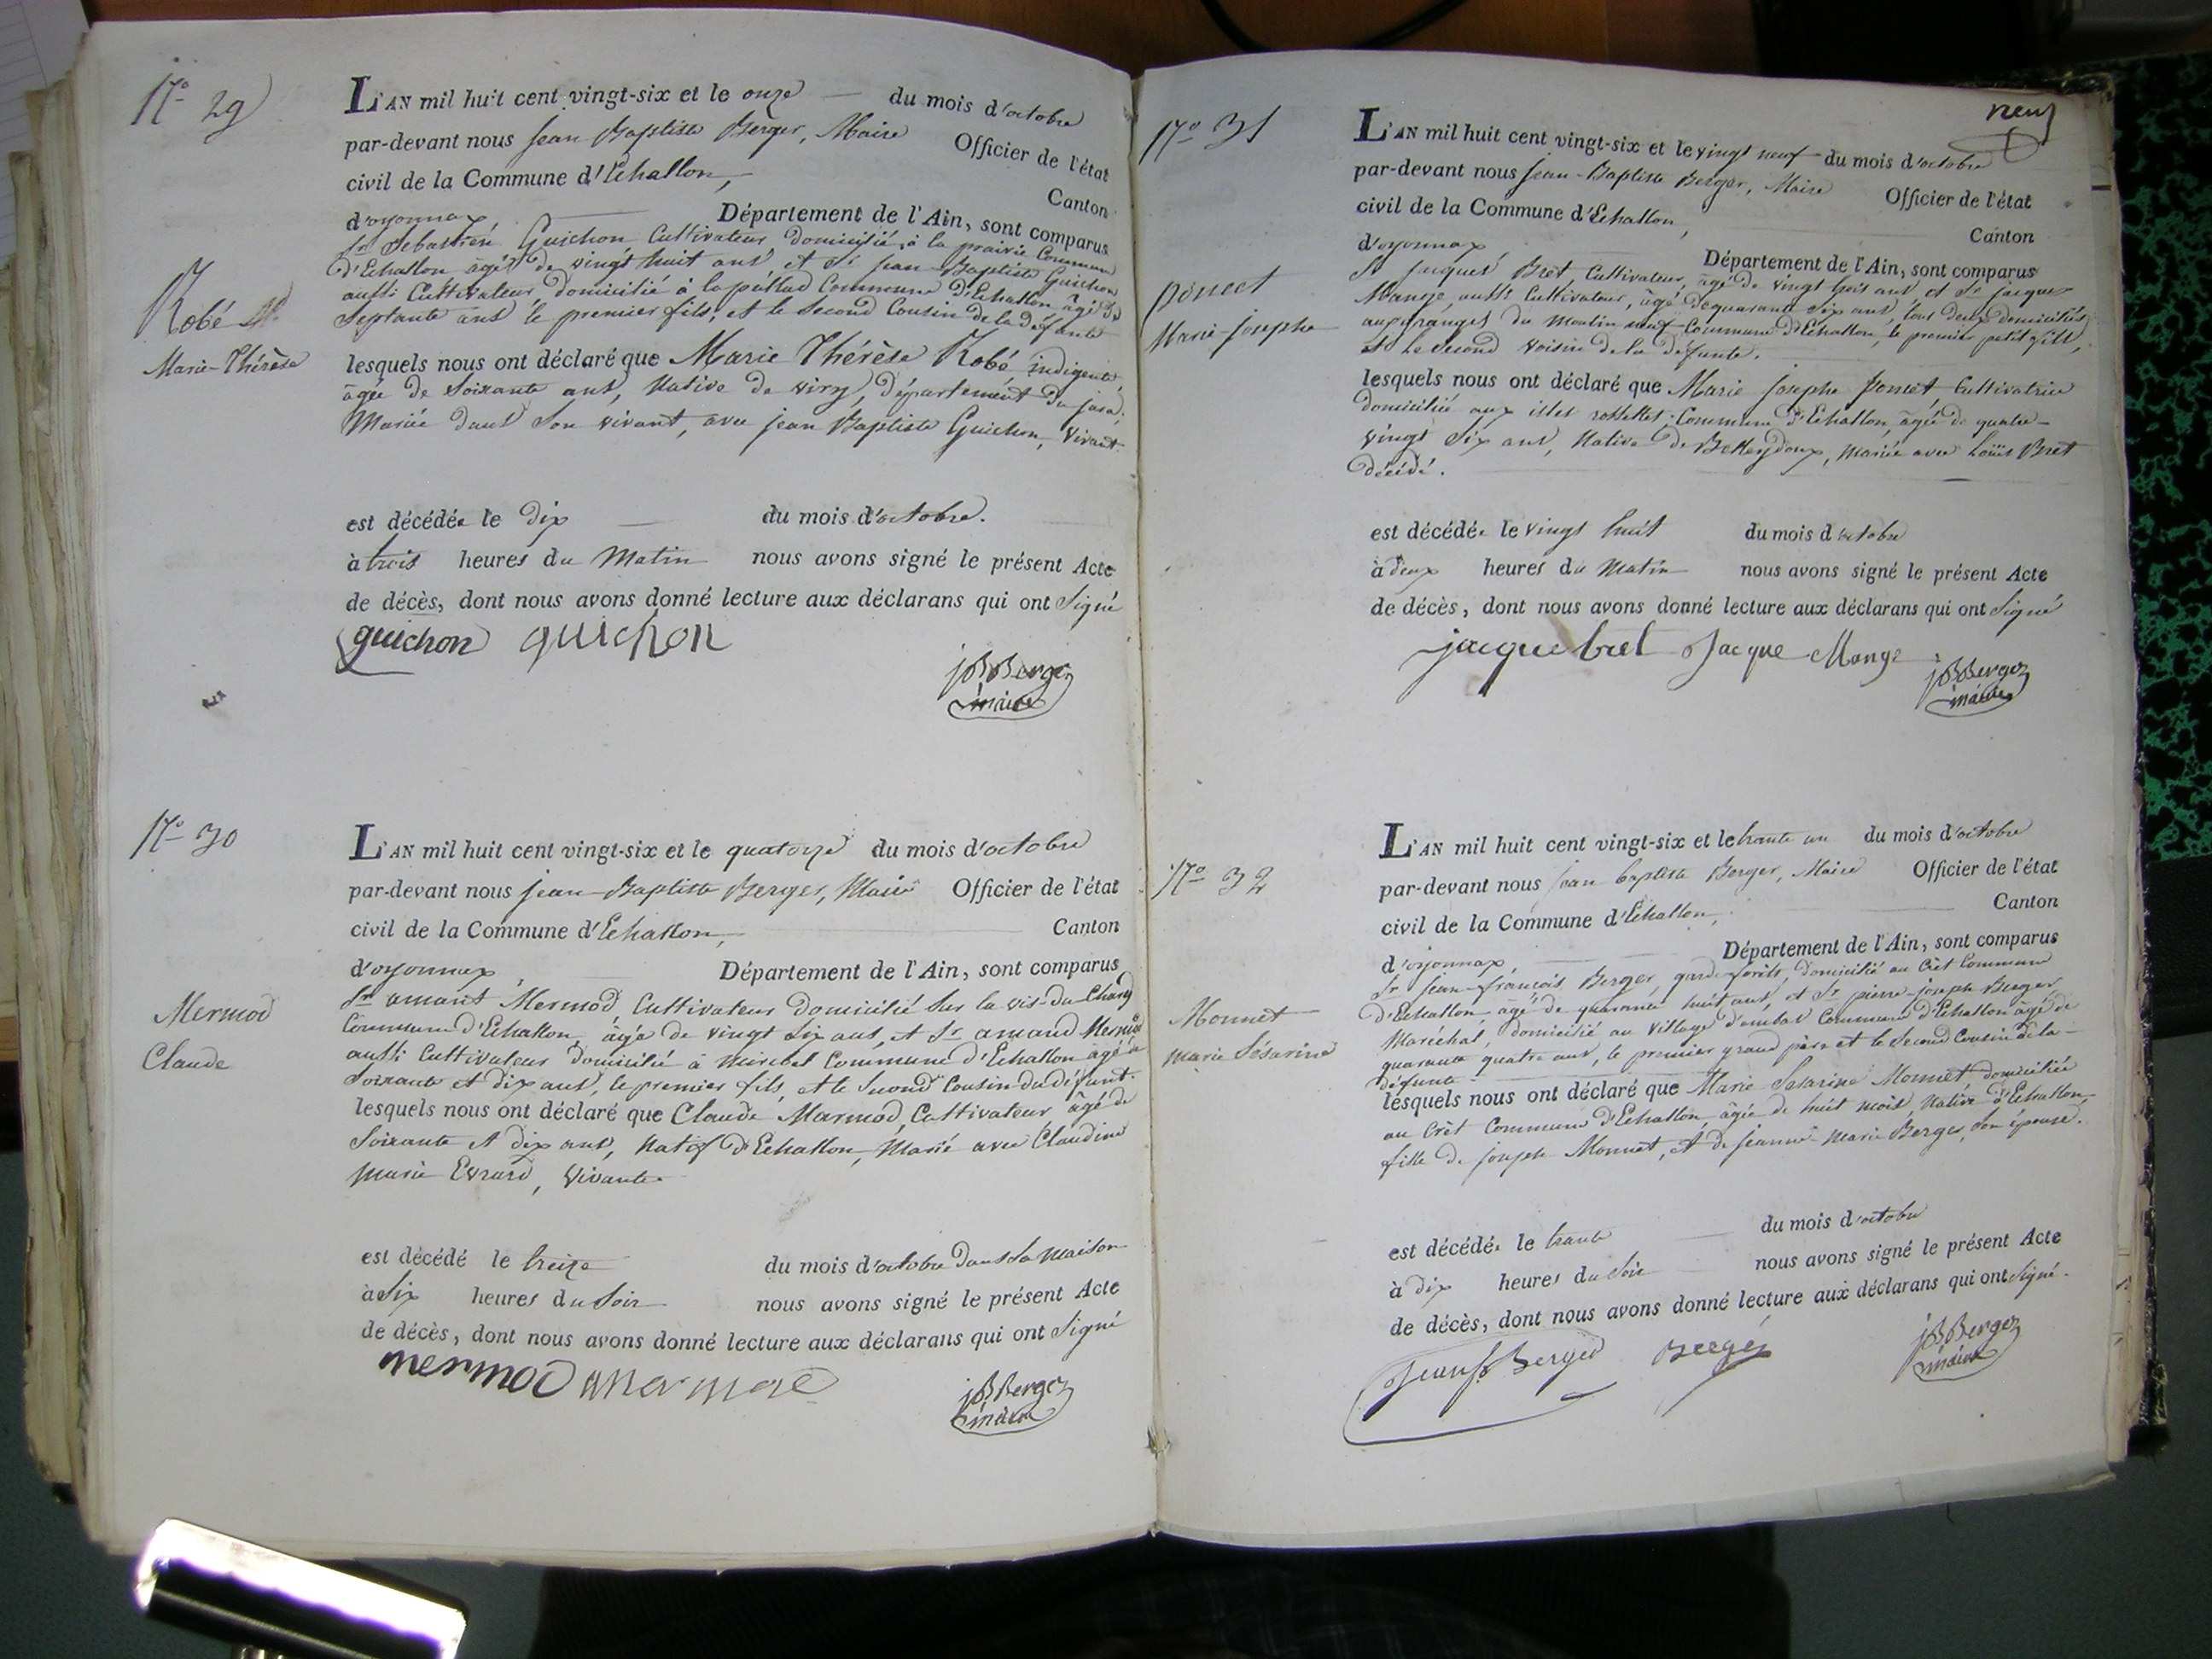 N.o 29
L'AN mil huit cent vingt-six et le onze du mois d'octobre
par-devant nous Jean Baptiste Berger, Maire Officier de l'état
civil de la Commune d'Echallon, Canton
d'oyonnax, Département de l'Ain, sont comparus
Sr Sebastien Guichon Cultivateur, domicilié à la prairie Commune
d'Echallon âgé de vingt huit ans et Sr Jean-Baptiste Guichon
aussi Cultivateur domicilié à Commune d'Echallon âgé de
Septante ans le premier fils, et le second Cousin de la défunte
Robé
Marie-Thérèse
lesquels nous ont déclaré que Marie Thérèse Robé indigente,
âgée de Soixante ans, Native de viry, Département du jura,
Mariée dans Son vivant, avec jean Baptiste Guichon, vivant.
est décédée le dix du mois d'octobre.
à trois heures du Matin nous avons signé le présent Acte
de décès, dont nous avons donné lecture aux déclarans qui ont Signé
guichon guichon
jBBerger
maire
N.o 30
L'AN mil huit cent vingt-six et le quatorze du mois d'octobre
par-devant nous jean-Baptiste Berger, Maire Officier de l'état
civil de la Commune d'Echallon, Canton
d'oyonnax, Département de l'Ain, sont comparus
Sr amant Mermod, Cultivateur domicilié Sur la vis-du-Chang
Commune d'Echallon, âgé de vingt Six ans, et Sr amand Mermod
aussi Cultivateur domicilié à Miribel Commune d'Echallon âgé de
Soixante et dix ans, le premier fils, et le Second Cousin du défunt.
Mermod
Claude
lesquels nous ont déclaré que Claude Marmod, Cultivateur âgé de
Soixante et dix ans, Natif d'Echallon, Marié avec Claudine
Marie Evrard, vivante.
est décédé le treize du mois d'octobre dans Sa Maison
à Six heures du Soir nous avons signé le présent Acte
de décès, dont nous avons donné lecture aux déclarans qui ont Signé
mermod mermod
jBBerger
maire
neuf
N.o 31
L'AN mil huit cent vingt-six et le vingt neuf du mois d'octobre
par-devant nous Jean-Baptiste Berger, Maire Officier de l'état
civil de la Commune d'Echallon, Canton
d'oyonnax Département de l'Ain, sont comparus
Sr Jacques Bret Cultivateur, âgé de vingt trois ans et Sr jacques
Mange, aussi Cultivateur, âgé de quarante Six ans, tous deux domiciliés
aux granges du Moulin neuf Commune d'Echallon, le premier petit fils,
et le Second voisin de la défunte.
ponect
Marie-josephe
lesquels nous ont déclaré que Marie josephe ponect, Cultivatrice
domiciliée aux isles Commune d'Echallon, âgée de quatre-
vingt Six ans, Native de Belleydoux, Mariée avec Louis Bret
décédé.
est décédée le vingt huit du mois d'octobre
à deux heures du Matin nous avons signé le présent Acte
de décès, dont nous avons donné lecture aux déclarans qui ont Signé
jaque bret Jacque Mange
jBBerger
maire
N.o 32
L'AN mil huit cent vingt-six et le trante un du mois d'octobre
par-devant nous jean baptiste Berger, Maire Officier de l'état
civil de la Commune d'Echallon, Canton
d'oyonnax, Département de l'Ain, sont comparus
Sr Jean-françois Berger, garde forêts, domicilié au Crêt Commune
d'Echallon âgé de quarante huit ans, et Sr pierre-joseph Berger,
Maréchal, domicilié au village d'ombat Commune d'Echallon âgé de
quarante quatre ans, le premier grand père et le Second Cousin de la
défunte
Monnet
marie Césarine
lesquels nous ont déclaré que Marie Sésarine Monnet domiciliée
au Crêt Commune d'Echallon, âgée de huit mois, Native d'Echallon,
fille de joseph Monnet, et de jeanne-Marie Berger, Son épouse.
est décédée le trante du mois d'octobre
à dix heures du Soir nous avons signé le présent Acte
de décès, dont nous avons donné lecture aux déclarans qui ont Signé.
Jean f Berger Berger
jBBerger
maire